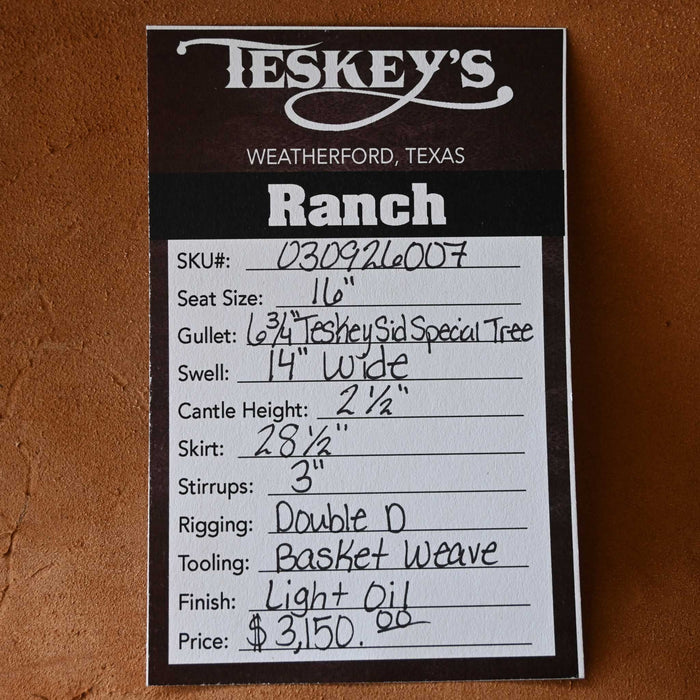 TESKEY'S
WEATHERFORD, TEXAS
Ranch
SKU#: 030926007
Seat Size: 16"
Gullet: 6 3/4" Teskey Sid Special Tree
Swell: 14" Wide
Cantle Height: 2 1/2"
Skirt: 28 1/2"
Stirrups: 3"
Rigging: Double D
Tooling: Basket Weave
Finish: Light Oil
Price: $3,150.00